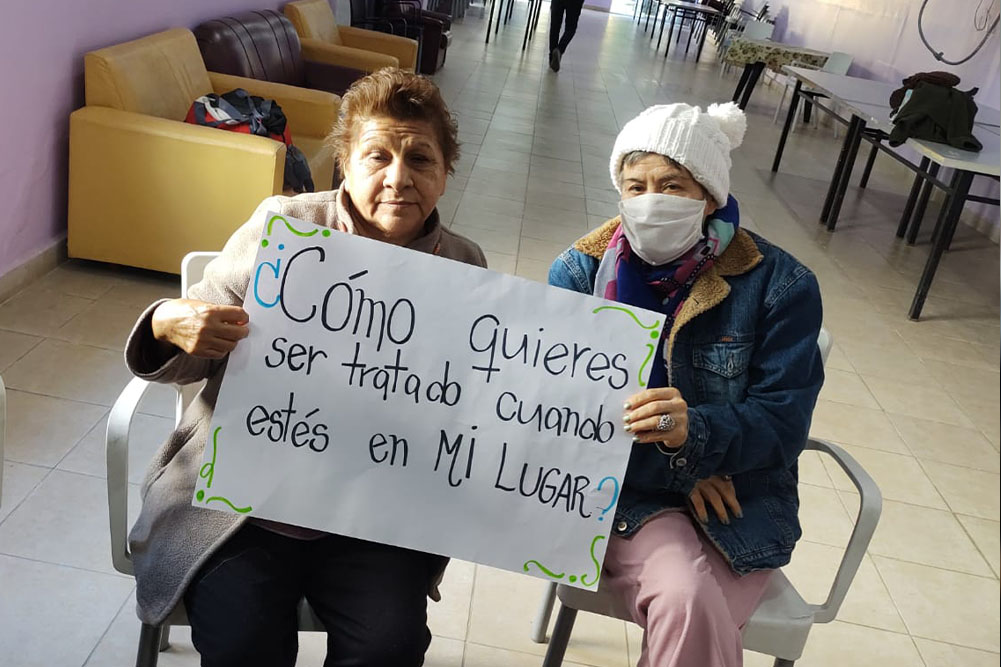 ¿Cómo quieres
ser tratado cuando
estés en Mi LUGAR?